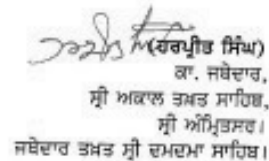 (ਹਰਪ੍ਰੀਤ ਸਿੰਘ)
ਕਾ. ਜਥੇਦਾਰ,
ਸ੍ਰੀ ਅਕਾਲ ਤਖ਼ਤ ਸਾਹਿਬ,
ਸ੍ਰੀ ਅੰਮ੍ਰਿਤਸਰ।
ਜਥੇਦਾਰ ਤਖ਼ਤ ਸ੍ਰੀ ਦਮਦਮਾ ਸਾਹਿਬ।